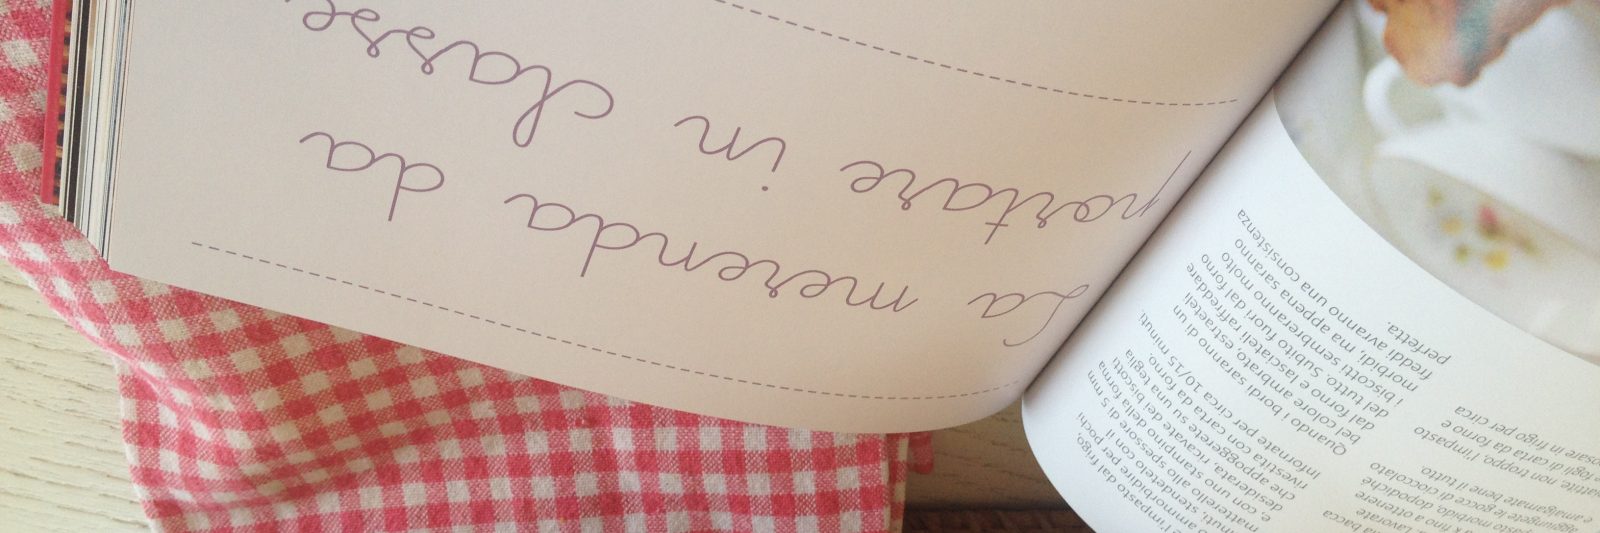 aggiungete le gocce di cioccolato
e amalgamate bene il tutto
non troppo, l'impasto
fogli di carta da forno e
in frigo per circa
l'impasto dal frigo,
minuti, ammorbidire per pochi
stendetelo con il
mattarello allo spessore di 5 mm
e, con uno stampino della forma
desiderata, ricavate dei biscotti
che appoggerete su una teglia
rivestita con carta da forno.
Infornate per circa 10/15 minuti.
Quando i bordi saranno di un
bel colore ambrato, estraeteli
dal forno e lasciateli raffreddare
del tutto. Subito fuori dal forno
i biscotti sembreranno molto
morbidi, ma appena saranno
freddi avranno una consistenza
perfetta.
La merenda da
portare in classe